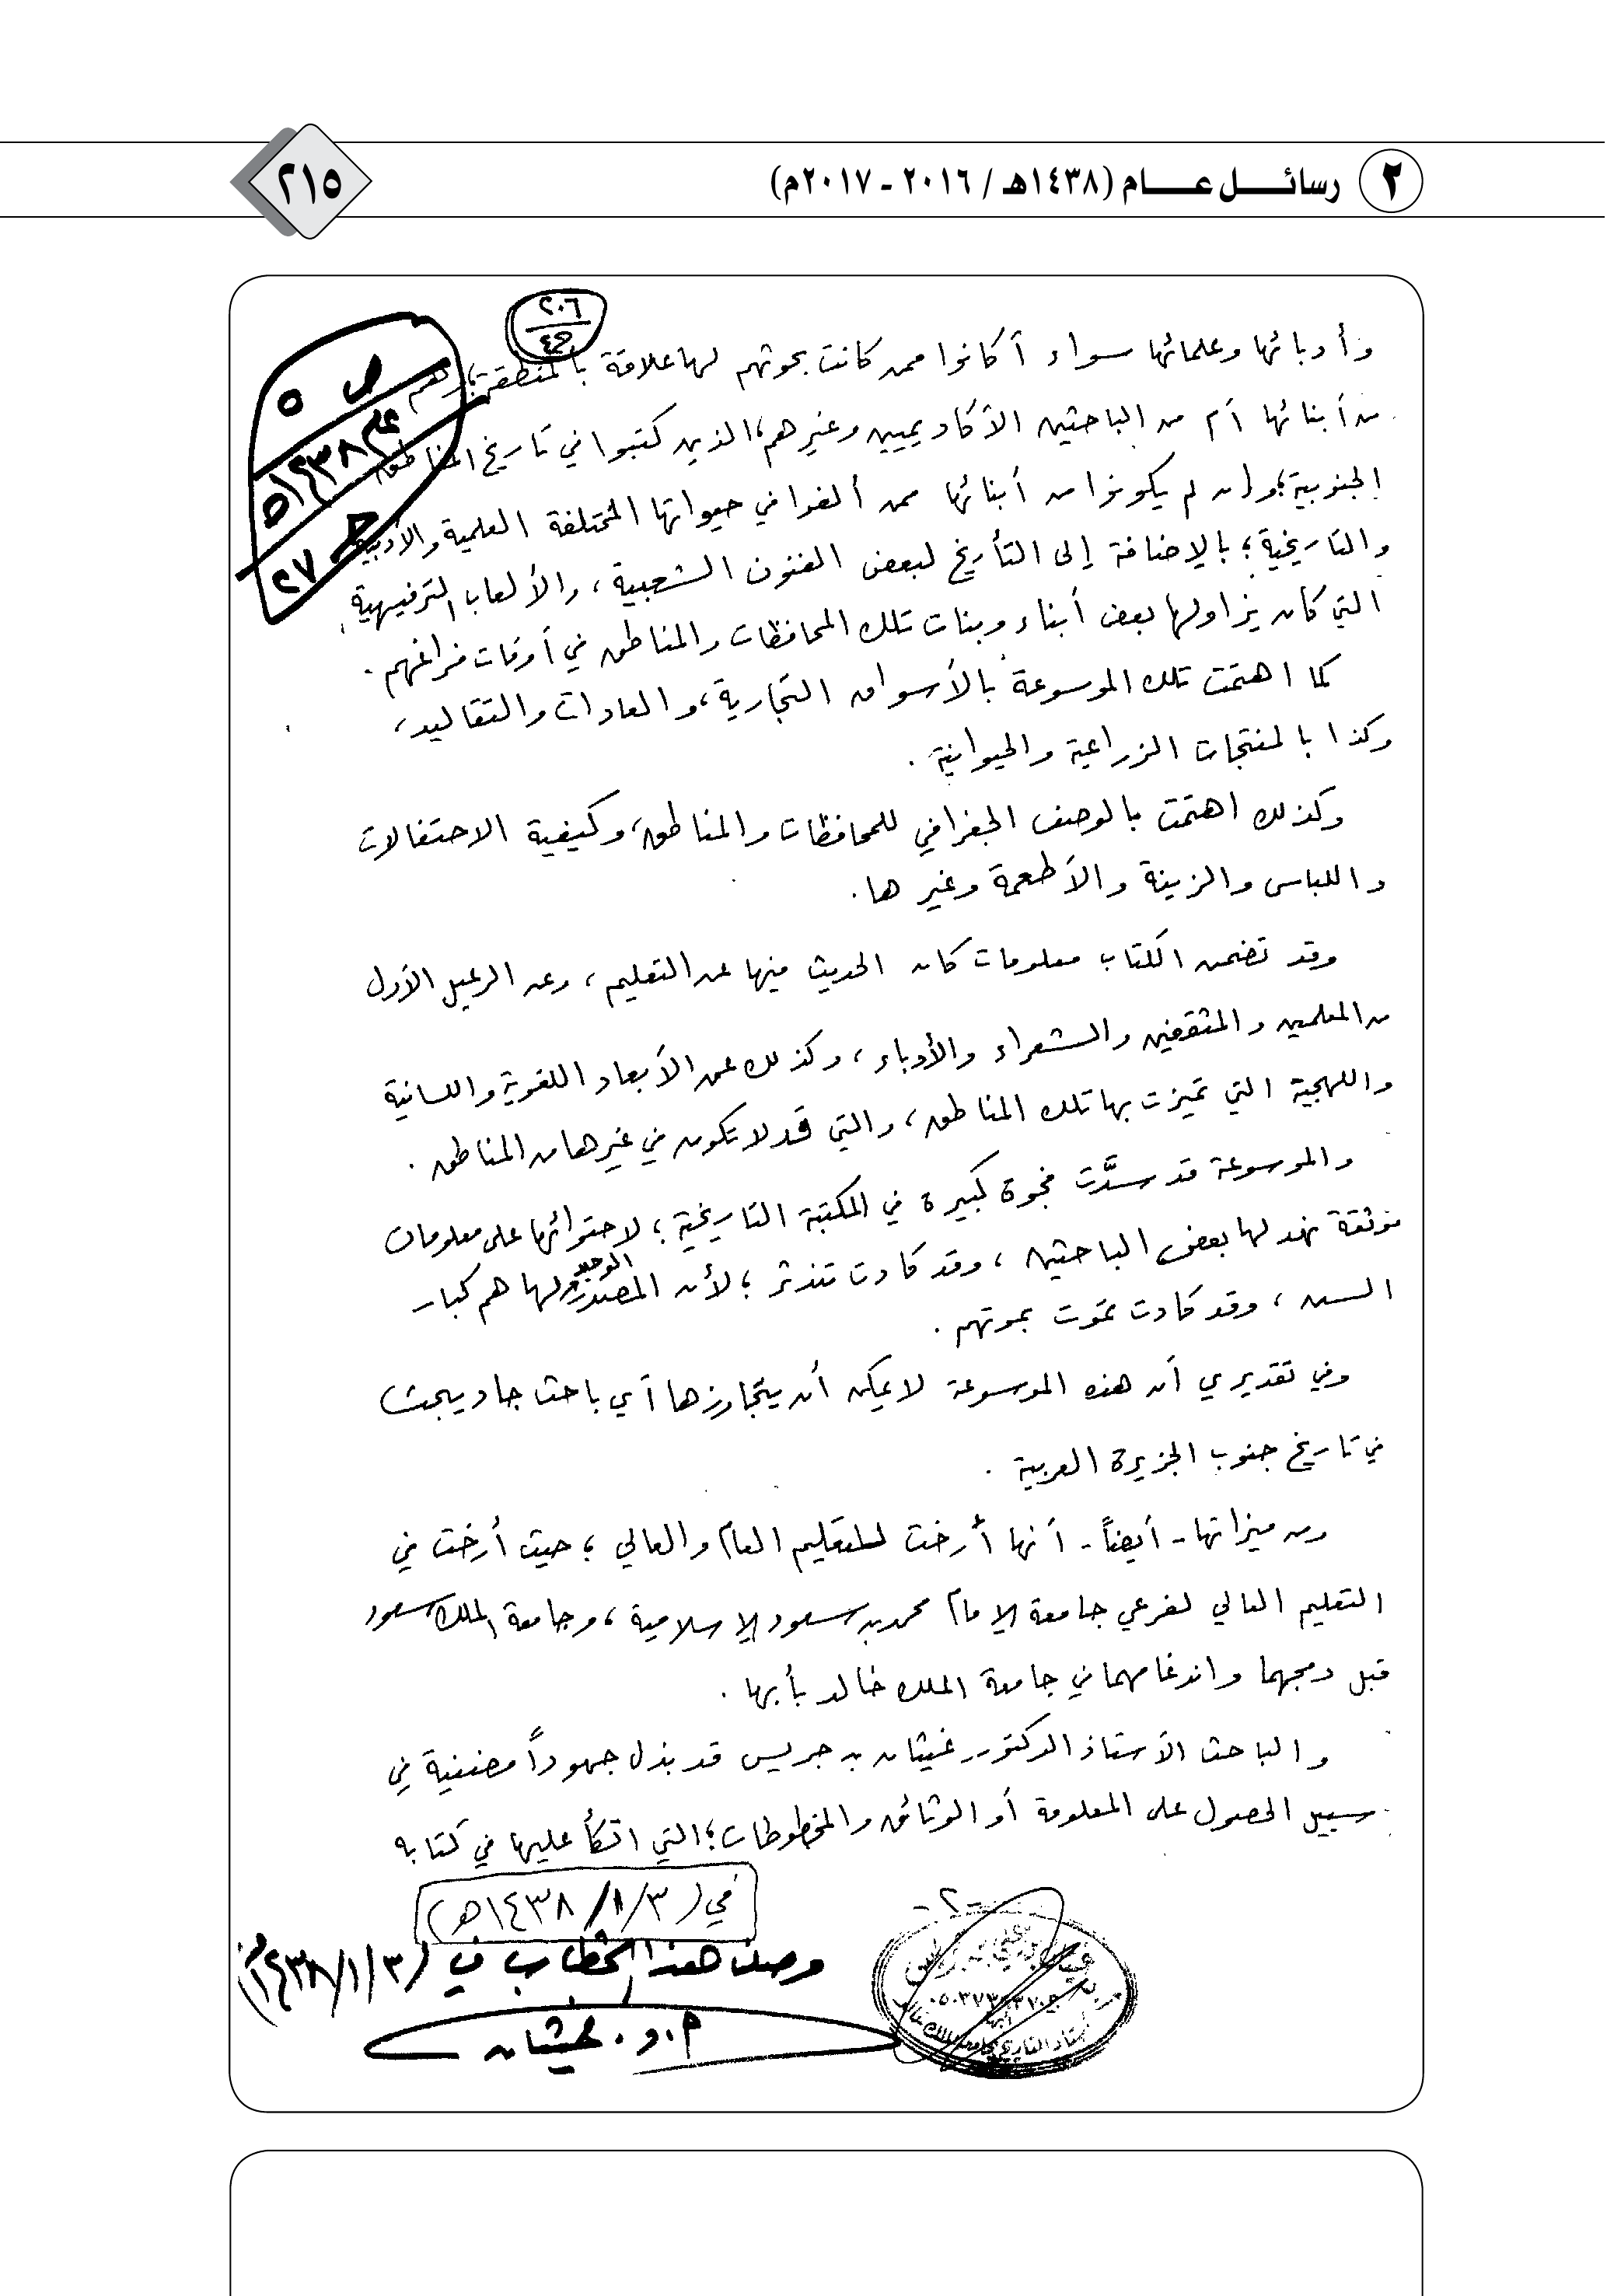 ٢ رسائل عام (١٤٣٨هـ / ٢٠١٦ - ٢٠١٧م)
٢١٥
٢٠٦
ج٤
ص ٥
عام ١٤٣٨هـ
ج ٢٧
وأدبائها وعلمائها سواء أكانوا ممن كانت بحوثهم لها علاقة بالمنطقة؛ وهم
من أبنائها أم من الباحثين الأكاديميين وغيرهم، الذين كتبوا في تاريخ المناطق
الجنوبية؛ وإن لم يكونوا من أبنائها ممن ألفوا في حيواتها المختلفة العلمية والأدبية
والتاريخية؛ بالإضافة إلى التأريخ لبعض الفنون الشعبية، والألعاب الترفيهية
التي كان يزاولها بعض أبناء وبنات تلك المحافظات والمناطق في أوقات فراغهم.
كما اهتمت تلك الموسوعة بالأسواق التجارية، والعادات والتقاليد،
وكذا بالمنتجات الزراعية والحيوانية.
وكذلك اهتمت بالوصف الجغرافي للمحافظات والمناطق، وكيفية الاحتفالات
واللباس والزينة والأطعمة وغيرها.
وقد تضمن الكتاب معلومات كان الحديث فيها عن التعليم، وعن الرعيل الأول
من المعلمين والمثقفين والشعراء والأدباء، وكذلك عن الأبعاد اللغوية واللسانية
واللهجية التي تميزت بها تلك المناطق، والتي قد لا تكون في غيرها من المناطق.
والموسوعة قد سدَّت فجوة كبيرة في المكتبة التاريخية؛ لاحتوائها على معلومات
موثقة نهد لها بعض الباحثين، وقد كادت تندثر؛ لأن المصدر الوحيد لها هم كبار
السن، وقد كادت تموت بموتهم.
وفي تقديري أن هذه الموسوعة لا يمكن أن يتجاوزها أي باحث جاد يبحث
في تاريخ جنوب الجزيرة العربية.
ومن ميزاتها - أيضاً - أنها أرخت للتعليم العام والعالي؛ حيث أرخت في
التعليم العالي لفرعي جامعة الإمام محمد بن سعود الإسلامية، وجامعة الملك سعود
قبل دمجهما واندغامهما في جامعة الملك خالد بأبها.
والباحث الأستاذ الدكتور غيثان بن جريس قد بذل جهوداً مضنية في
سبيل الحصول على المعلومة أو الوثائق والمخطوطات؛ التي اتكأ عليها في كتابه
-٢-
في (١٤٣٨/١/٣هـ)
وصلنا هذا الخطاب في (١٤٣٨/١/٣هـ)
أ. د. غيثان